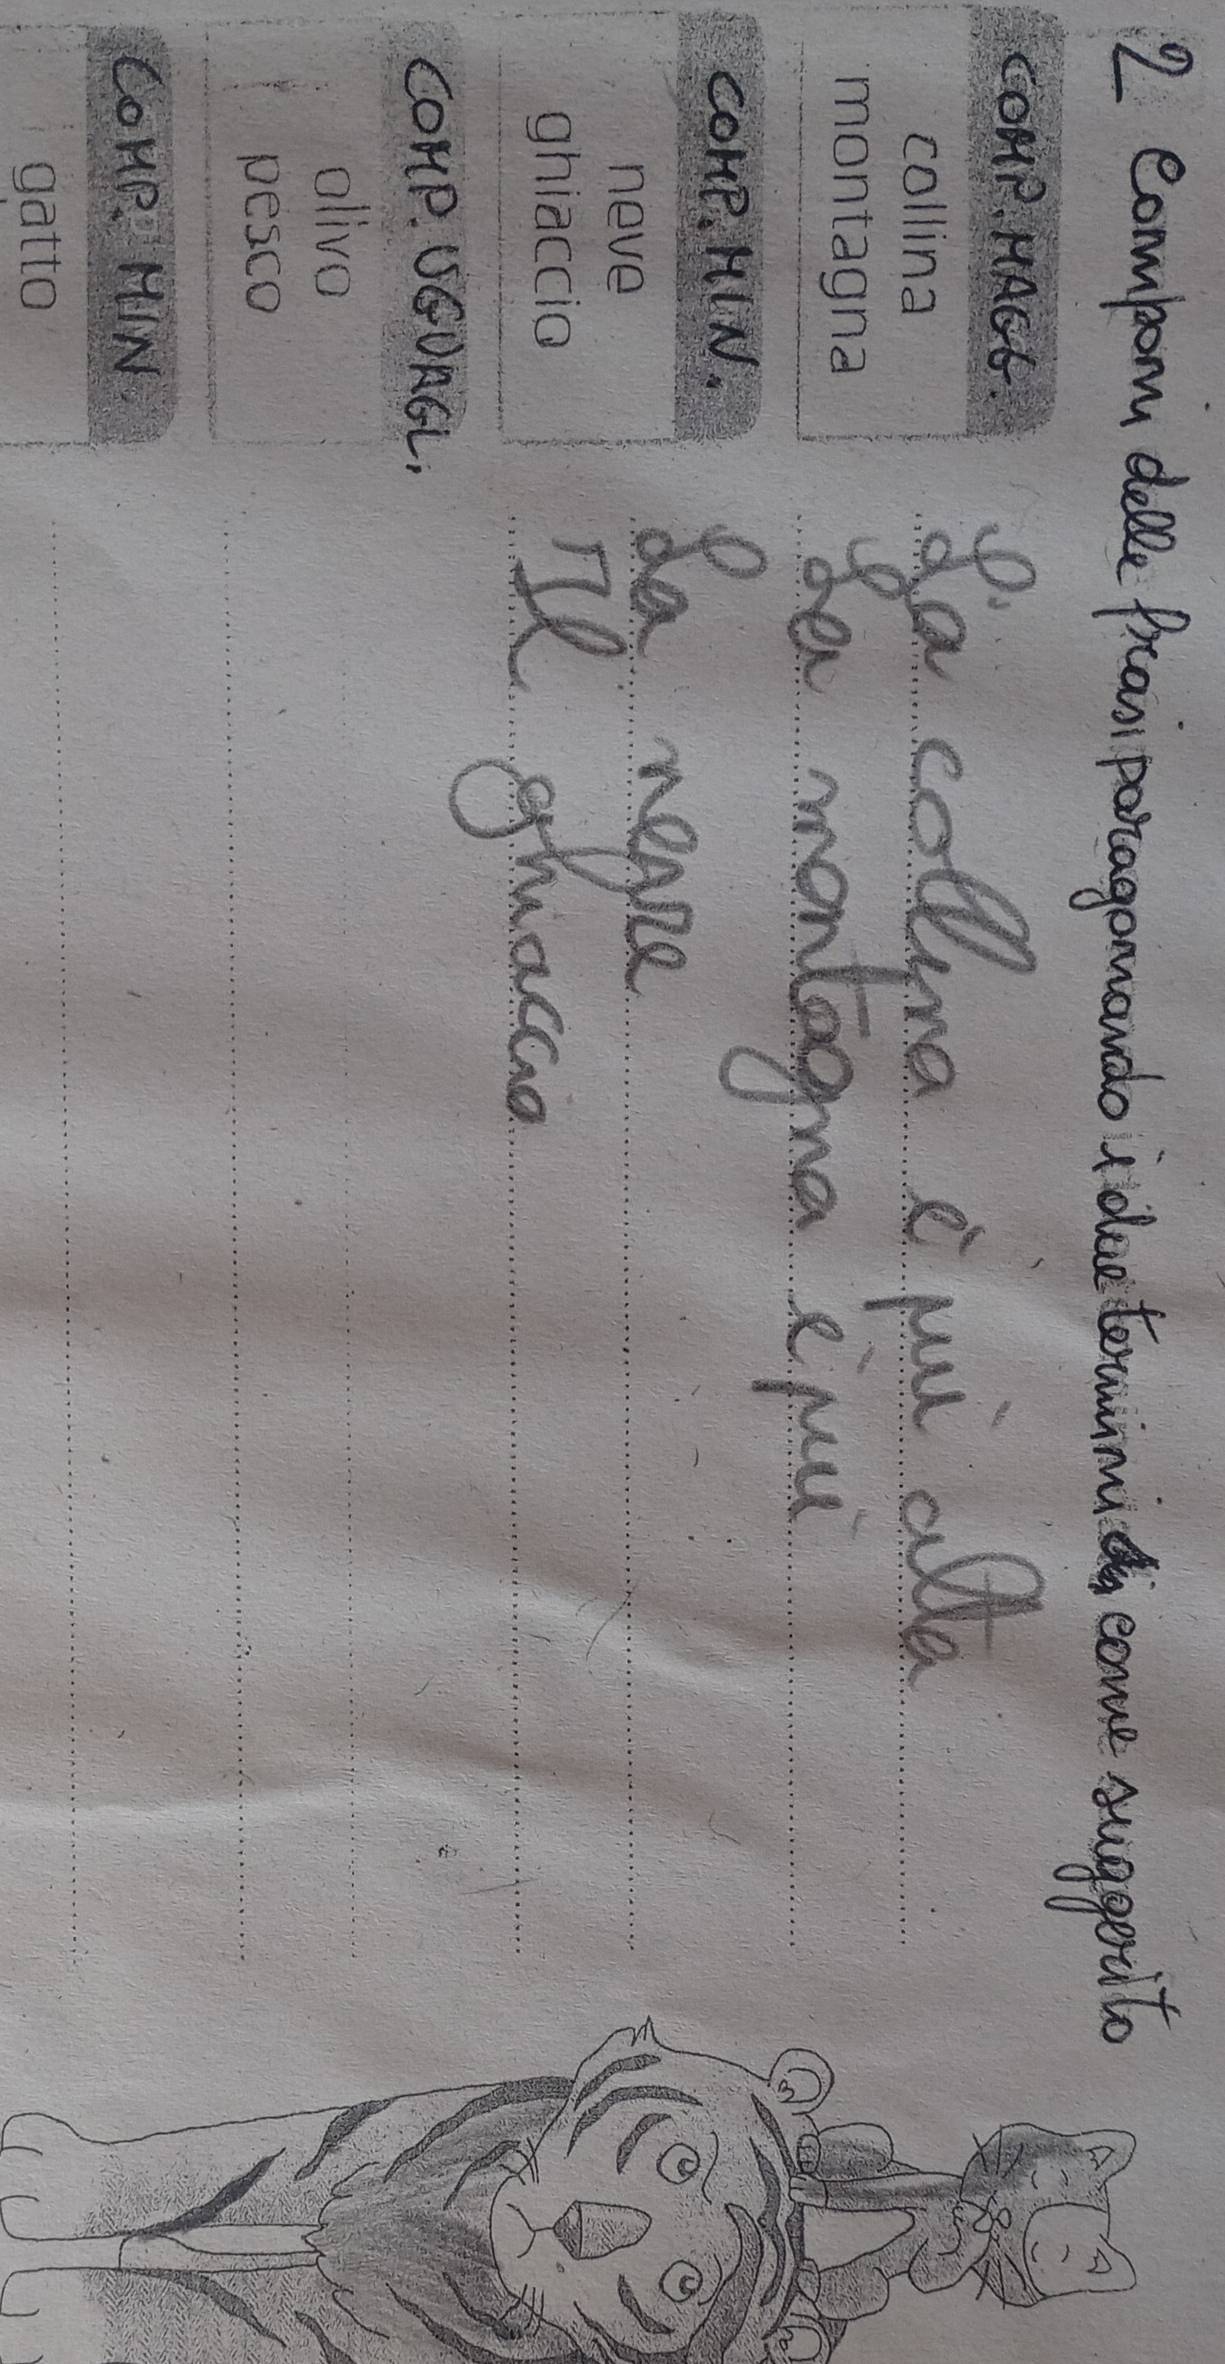 2 Componi delle frasi paragonando i due termini come suggerito
COMP. MAGG.
collina
montagna
La collina è più alta
La montagna è più
COMP. MIN.
neve
ghiaccio
La neve
Il ghiaccio
COMP. UGUAGL.
olivo
pesco
COMP. MIN.
gatto